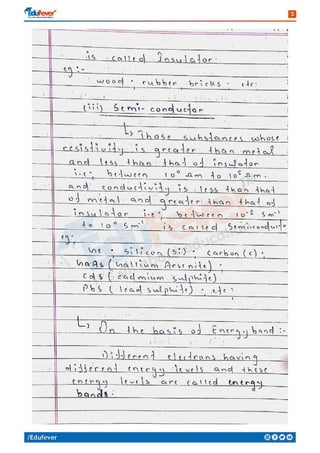 Edufever
3
is called Insulator.
eg:-
wood, rubber bricks, etc.
(iii) Semi-conductor
↳ Those substances whose
resistivity is greater than metal
and less than that of insulator
i.e; between 10⁰ Ωm to 10⁵ Ωm.
and conductivity is less than that
of metal and greater than that of
insulator i.e; between 10⁻⁵ Sm⁻¹
to 10⁰ Sm⁻¹ is called Semiconducto
eg:
Ge, Silicon (Si), Carbon (C),
GaAs (Galium Arsenite),
CdS (Cadmium Sulphite)
PbS (Lead sulphite), etc.
↳ On the basis of Energy band:-
Different electrons having
different energy levels and these
energy levels are called energy
bands.
/Edufever